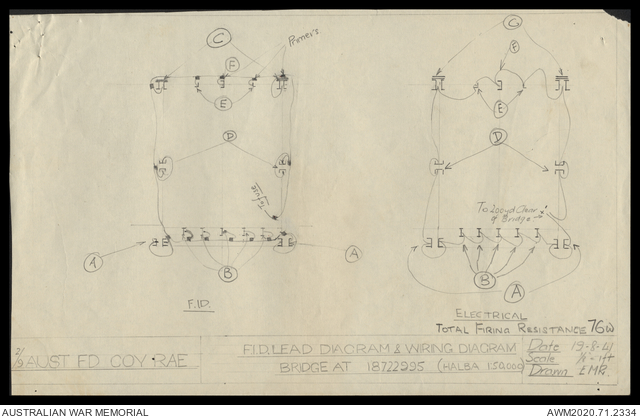 C
Primers
F
E
D
A
B
A
F.I.D.
C
F
E
D
To 200yd Clear
of Bridge
B
A
ELECTRICAL
TOTAL FIRING RESISTANCE 76ω
2/9 AUST FD COY RAE
F.I.D. LEAD DIAGRAM & WIRING DIAGRAM
BRIDGE AT 18722995 (HALBA 1:50,000)
Date 19-8-41
Scale
Drawn EMR.
AUSTRALIAN WAR MEMORIAL
AWM2020.71.2334